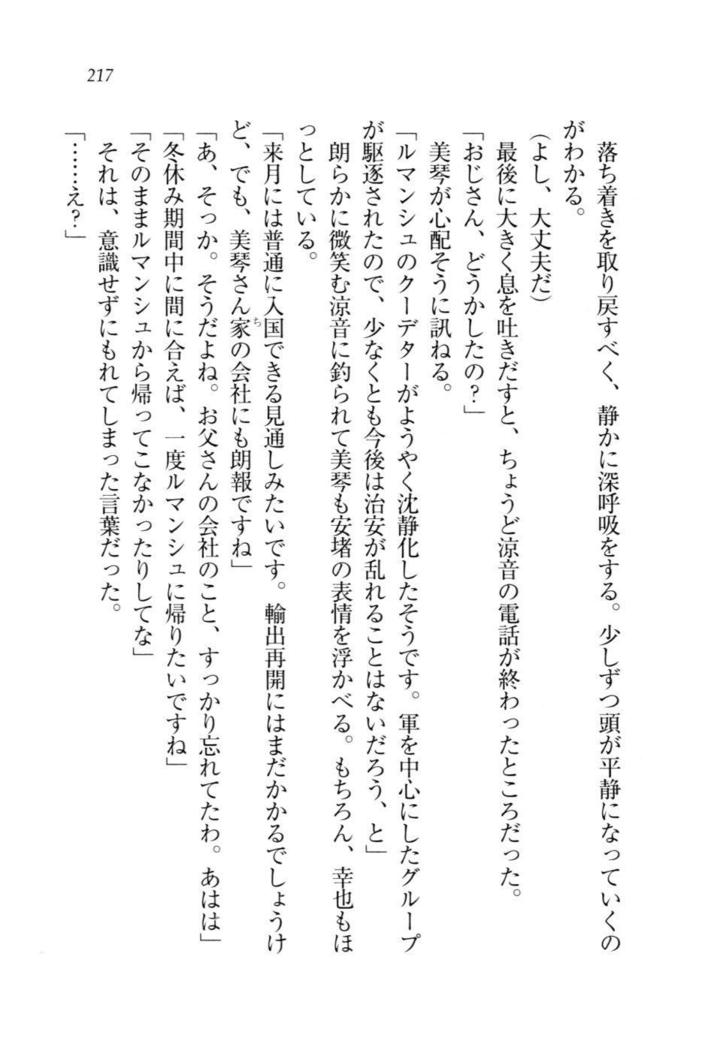 217
落ち着きを取り戻すべく、静かに深呼吸をする。少しずつ頭が平静になっていくの
がわかる。
(よし、大丈夫だ)
最後に大きく息を吐きだすと、ちょうど涼音の電話が終わったところだった。
「おじさん、どうかしたの?」
美琴が心配そうに訊ねる。
「ルマンシュのクーデターがようやく沈静化したそうです。軍を中心にしたグループ
が駆逐されたので、少なくとも今後は治安が乱れることはないだろう、と」
朗らかに微笑む涼音に釣られて美琴も安堵の表情を浮かべる。もちろん、幸也もほ
っとしている。
「来月には普通に入国できる見通しみたいです。輸出再開にはまだかかるでしょうけ
ど、でも、美琴さん家ちの会社にも朗報ですね」
「あ、そっか。そうだよね。お父さんの会社のこと、すっかり忘れてたわ。あはは」
「冬休み期間中に間に合えば、一度ルマンシュに帰りたいですね」
「そのままルマンシュから帰ってこなかったりしてな」
それは、意識せずにもれてしまった言葉だった。
「……え?」